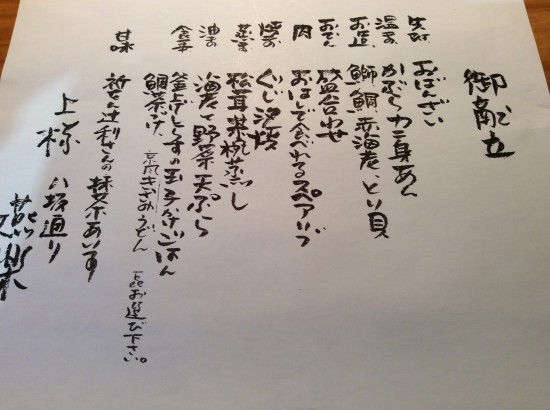 御献立
先附 おばんざい
温物 かぶら カニ身あん
お造り 鰤 鯛 赤海老 とり貝
おでん 盛合わせ
肉 おはしで食べれるスペアリブ
焼物 ぐじ酒焼
蒸し物 松茸茶椀蒸し
油物 海老と野菜天ぷら
食事 釜上げしらすの玉子かけごはん
鯛茶づけ 京風きざみうどん 一品お選び下さい。
甘味 祇をん辻利さんの抹茶あいす
上椋 八坂通り